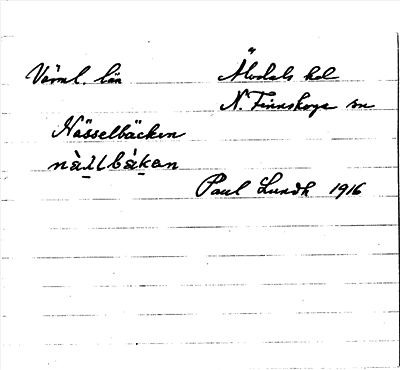 Värml. län
Älvdals hd
N. Finnskoga sn
Nässelbäcken
Paul Lundh 1916